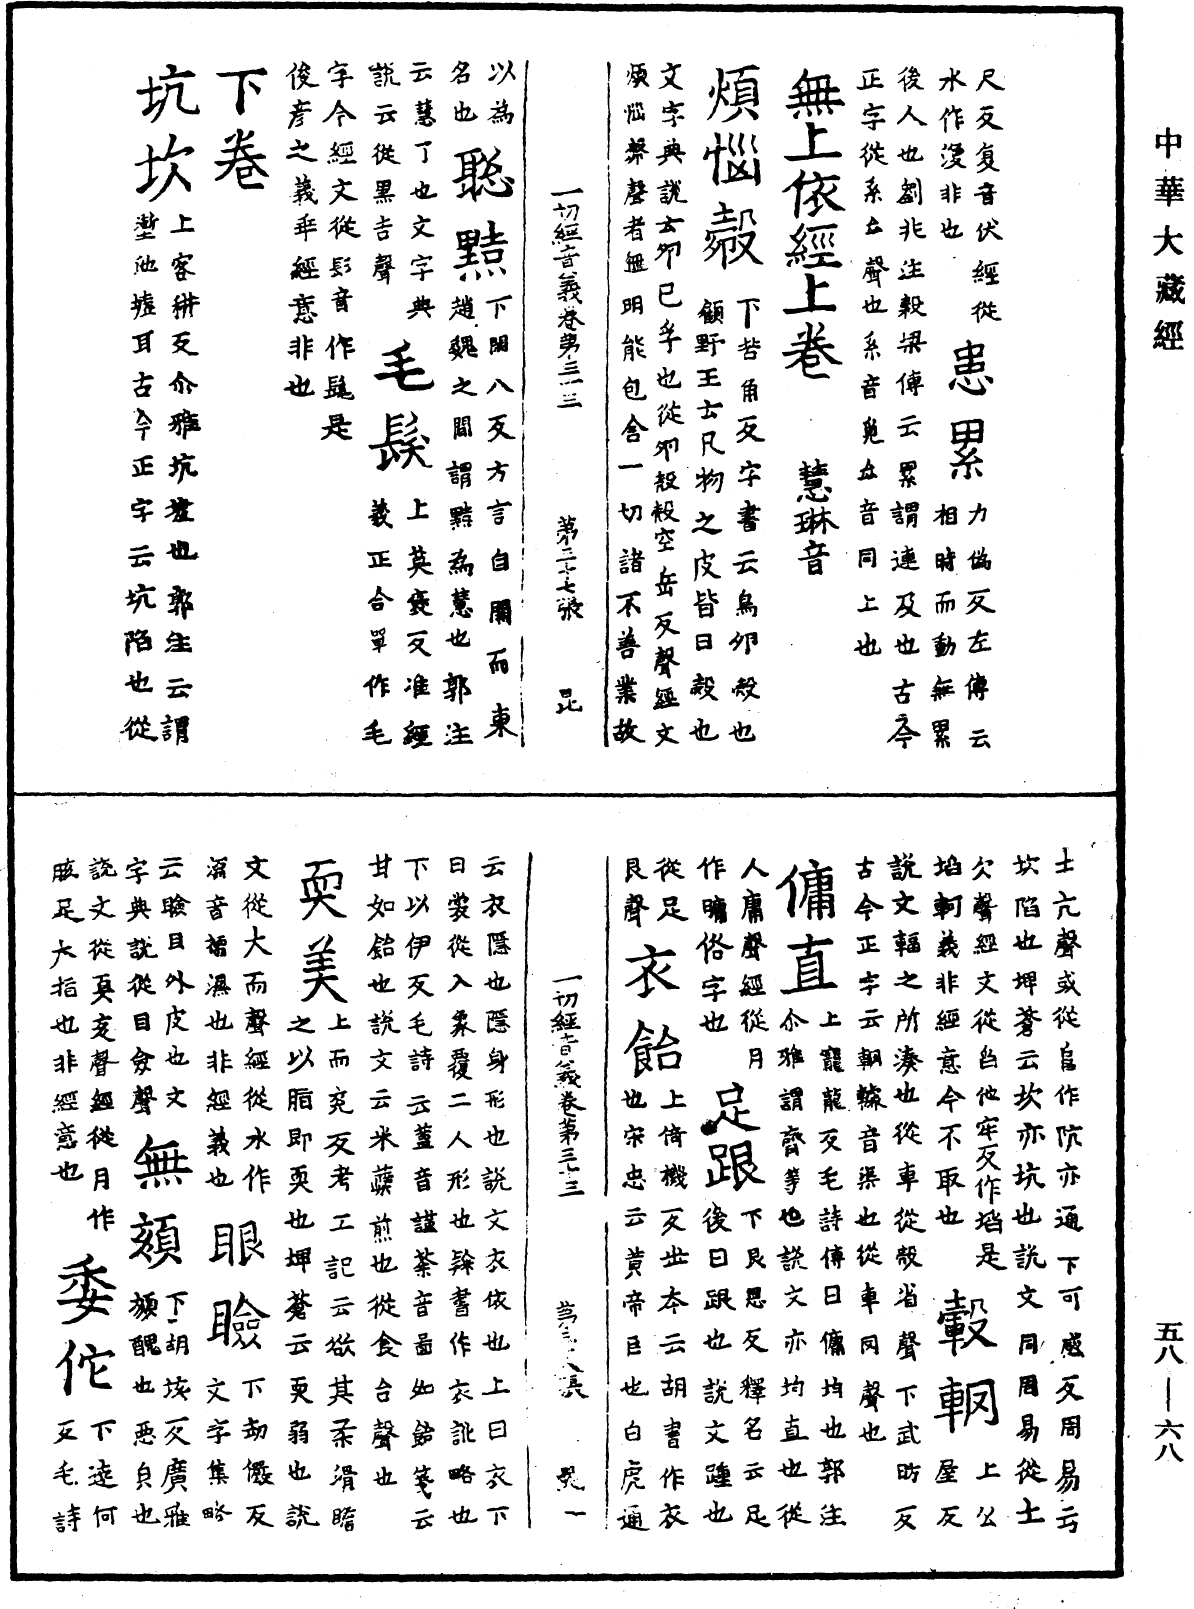 中華大藏經
五八—六八
尺反复音伏經從
水作澓非也
患累
力偽反左傳云
相時而動無累
後人也劉兆注穀梁傳云累謂連及也古今
正字從糸畾聲也糸音覓畾音同上也
無上依經上卷 慧琳音
煩惱㲉
下苦角反字書云鳥卵㲉也
顧野王云凡物之皮皆曰㲉也
文字典說云卵已孚也從卵㱿㱿空岳反聲經文
煩惱㲉聲者無明能包含一切諸不善業故
一切經音義卷第三十三 第二十七張 昆
以為
名也
聰黠
下閑八反方言自關而東
趙魏之間謂黠為慧也郭注
云慧了也文字典
說云從黑吉聲
毛髮
上莫褒反准經
義正合單作毛
字今經文從髟音作髦是
俊彥之義乖經意非也
下卷
坑坎
上客耕反尒雅坑墟也郭注云謂
壍池墟耳古今正字云坑陷也從
土亢聲或從𨸏作阬亦通下可感反周易云
坎陷也埤蒼云坎亦坑也說文同周易從土
欠聲經文從臽他牢反作埳是
埳軻義非經意今不取也
轂輞
上公
屋反
說文輻之所湊也從車從㱿省聲下武昉反
古今正字云輞輮音渠也從車罔聲也
傭直
上寵龍反毛詩傳曰傭均也郭注
尒雅謂齊等也說文亦均直也從
人庸聲經從月
作𦟛俗字也
足跟
下艮恩反釋名云足
後曰跟也說文踵也
從足
艮聲
衣飴
上倚機反世本云胡曹作衣
也宋忠云黃帝臣也白虎通
一切經音義卷第三十三 第二十八張 昆一
云衣隱也隱身形也說文衣依也上曰衣下
曰裳從入象覆二人形也𥾝書作衣訛略也
下以伊反毛詩云堇音謹荼音圖如飴箋云
甘如飴也說文云米糱煎也從食台聲也
耎美
上而兖反考工記云欲其柔滑腝
之以脂即耎也埤蒼云耎弱也說
文從大而聲經從水作
濡音襦濕也非經義也
眼瞼
下劫儼反
文字集略
云瞼目外皮也文
字典說從目僉聲
無頦
下胡垓反廣雅
頦醜也惡皃也
說文從頁亥聲經從月作
胲足大指也非經意也
委佗
下達何
反毛詩